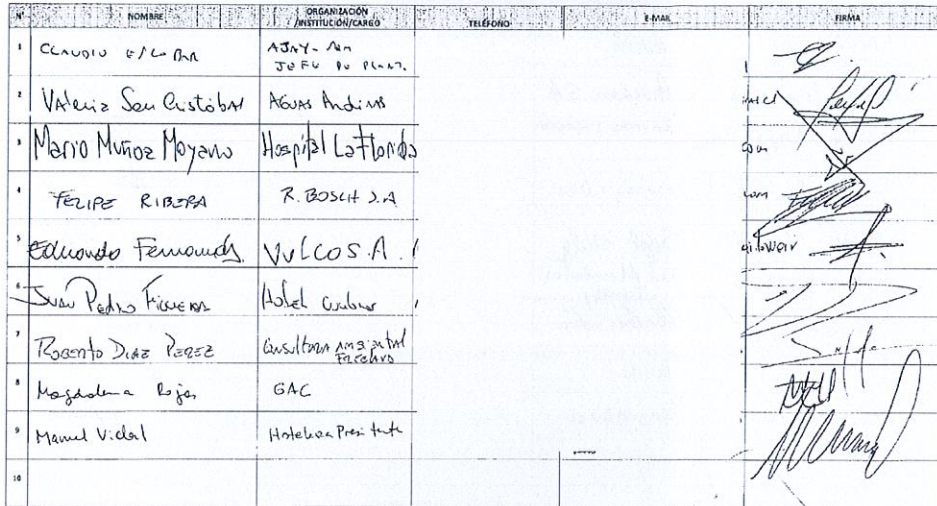 N° NOMBRE ORGANIZACIÓN /INSTITUCIÓN/CARGO TELÉFONO E-MAIL FIRMA
1 CLAUDIO ESCOBAR AJAY-
JEFE DE PLANT.
2 VAleria San Cristóbal AGUAS Andinas
3 Mario Muñoz Moyano Hospital La Florida com
4 FELIPE RIBERA R. BOSCH S.A com
5 Eduardo Fernandez VULCO S.A.
6 Juan Pedro FIGUEROA Hotel
7 Roberto DIAZ PEREZ Consultora AMBIENTAL
8 Magdalena Rojas GAC
9 Manuel Vidal Hotelera
10